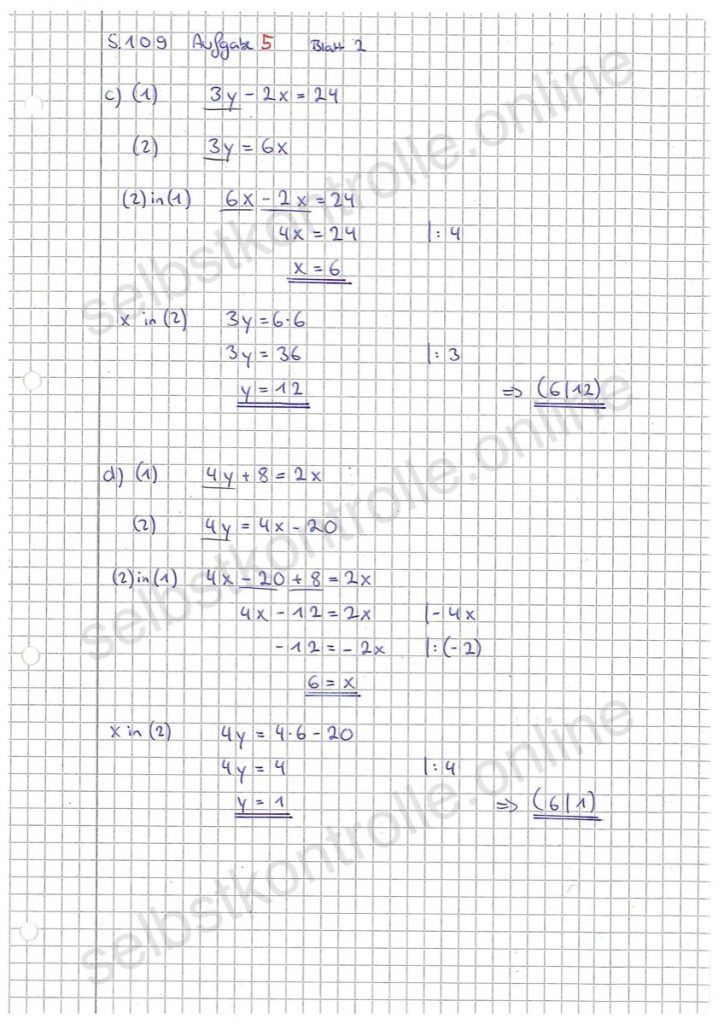 S.109 Aufgabe 5 Blatt 2
c) (1) 3y - 2x = 24
(2) 3y = 6x
(2) in (1) 6x - 2x = 24
4x = 24 |: 4
x = 6
x in (2) 3y = 6·6
3y = 36 |: 3
y = 12 => (6|12)
d) (1) 4y + 8 = 2x
(2) 4y = 4x - 20
(2) in (1) 4x - 20 + 8 = 2x
4x - 12 = 2x |- 4x
- 12 = - 2x |: (- 2)
6 = x
x in (2) 4y = 4·6 - 20
4y = 4 |: 4
y = 1 => (6|1)
selbstkontrolle.online
selbstkontrolle.online
selbstkontrolle.online